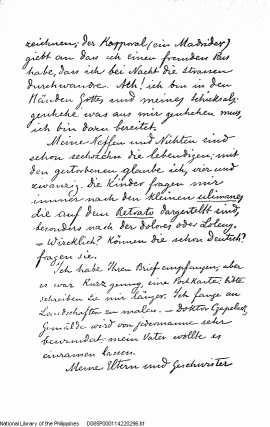 zeichnen; der Kapporal (ein Madrider)
giebt an dass ich einen fremden Pass
habe, dass ich bei Nacht die strassen
durchwandre. Ach! ich bin in den
Händen Gottes und meines Schicksals;
geschehe was aus mir geschehen muss,
ich bin dazu bereitet.
Meine Neffen und Nichten sind
schon sechszehn die lebendigen; mit
den gestorbenen glaube ich, vier und
zwanzig. die Kinder fragen mir
immer nach den kleinen
die auf dem Retrato dargestellt sind,
besonders nach der dolores oder Loleng.
– Wircklich? Können die schon deutsch?
fragen sie.
Ich habe Ihren Brief empfangen; aber
es war kurz genug, eine Postkarte; bitte
schreiben Sie mir länger. Ich fange an
Landschaften zu malen. – Doktor
Gemälde wird von jedermann sehr
bewundert mein Vater wollte es
einramen lassen.
Meine Eltern und Geschwister
National Library of the Philippines